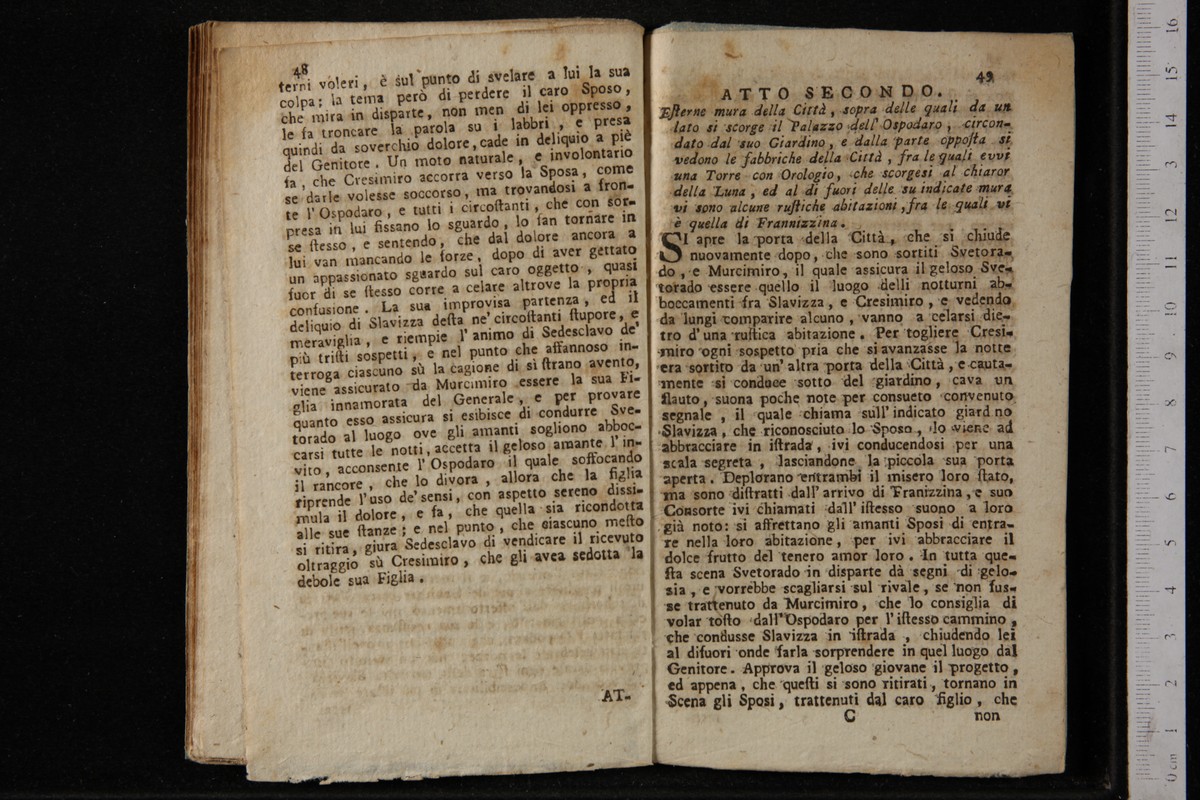 48
terni voleri, è sul punto di svelare a lui la sua
colpa; la tema però di perdere il caro Sposo,
che mira in disparte, non men di lei oppresso,
le fa troncare la parola su i labbri, e presa
quindi da soverchio dolore, cade in deliquio a piè
del Genitore. Un moto naturale, e involontario
fa, che Cresimiro accorra verso la Sposa, come
se darle volesse soccorso, ma trovandosi a fron-
te l'Ospodaro, e tutti i circoſtanti, che con sor-
presa in lui fissano lo sguardo, lo fan tornare in
se ſtesso, e sentendo, che dal dolore ancora a
lui van mancando le forze, dopo di aver gettato
un appassionato sguardo sul caro oggetto, quasi
fuor di se ſtesso corre a celare altrove la propria
confusione. La sua improvisa partenza, ed il
deliquio di Slavizza deſta ne' circoſtanti ſtupore, e
meraviglia, e riempie l'animo di Sedesclavo de'
più triſti sospetti, e nel punto che affannoso in-
terroga ciascuno sù la cagione di sì ſtrano avento,
viene assicurato da Murcimiro essere la sua Fi-
glia innamorata del Generale, e per provare
quanto esso assicura si esibisce di condurre Sve-
torado al luogo ove gli amanti sogliono abboc-
carsi tutte le notti, accetta il geloso amante l'in-
vito, acconsente l'Ospodaro il quale soffocando
il rancore, che lo divora, allora che la figlia
riprende l'uso de' sensi, con aspetto sereno dissi-
mula il dolore, e fa, che quella sia ricondotta
alle sue ſtanze; e nel punto, che ciascuno meſto
si ritira, giura Sedesclavo di vendicare il ricevuto
oltraggio sù Cresimiro, che gli avea sedotta la
debole sua Figlia.
AT-
49
ATTO SECONDO.
Eſterne mura della Città, sopra delle quali da un
lato si scorge il Palazzo dell'Ospodaro, circon-
dato dal suo Giardino, e dalla parte oppoſta si
vedono le fabbriche della Città, fra le quali evvi
una Torre con Orologio, che scorgesi al chiaror
della Luna, ed al di fuori delle su indicate mura
vi sono alcune ruſtiche abitazioni, fra le quali vi
è quella di Frannizzina.
SI apre la porta della Città, che si chiude
nuovamente dopo, che sono sortiti Svetora-
do, e Murcimiro, il quale assicura il geloso Sve-
torado essere quello il luogo delli notturni ab-
boccamenti fra Slavizza, e Cresimiro, e vedendo
da lungi comparire alcuno, vanno a celarsi die-
tro d'una ruſtica abitazione. Per togliere Cresi-
miro ogni sospetto pria che si avanzasse la notte
era sortito da un'altra porta della Città, e cauta-
mente si conduce sotto del giardino, cava un
flauto, suona poche note per consueto convenuto
segnale, il quale chiama sull'indicato giard no
Slavizza, che riconosciuto lo Sposo, lo viene ad
abbracciare in iſtrada, ivi conducendosi per una
scala segreta, lasciandone la piccola sua porta
aperta. Deplorano entrambi il misero loro ſtato,
ma sono diſtratti dall'arrivo di Franizzina, e suo
Consorte ivi chiamati dall'iſtesso suono a loro
già noto: si affrettano gli amanti Sposi di entra-
re nella loro abitazione, per ivi abbracciare il
dolce frutto del tenero amor loro. In tutta que-
ſta scena Svetorado in disparte dà segni di gelo-
sia, e vorrebbe scagliarsi sul rivale, se non fus-
se trattenuto da Murcimiro, che lo consiglia di
volar toſto dall'Ospodaro per l'iſtesso cammino,
che condusse Slavizza in iſtrada, chiudendo lei
al difuori onde farla sorprendere in quel luogo dal
Genitore. Approva il geloso giovane il progetto,
ed appena, che queſti si sono ritirati, tornano in
Scena gli Sposi, trattenuti dal caro figlio, che
C non